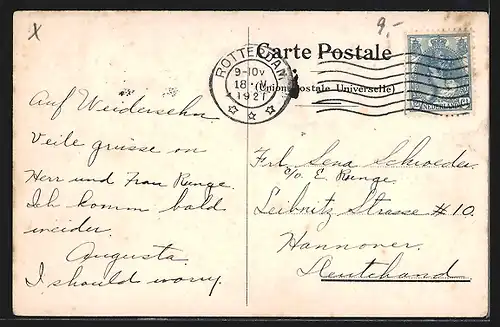 x
9.-
Carte Postale
(Union Postale Universelle)
ROTTERDAM
9-10V
18 · IV
1921
NEDERLAND
Auf Weidersehn.
Veile grüsse on
Herr und Frau Runge.
Ich komm bald
weider.
Augusta
I should worry.
Frl. Lena Schroeder
c/o E. Runge.
Leibnitz Strasse # 10.
Hannover.
Deutchand